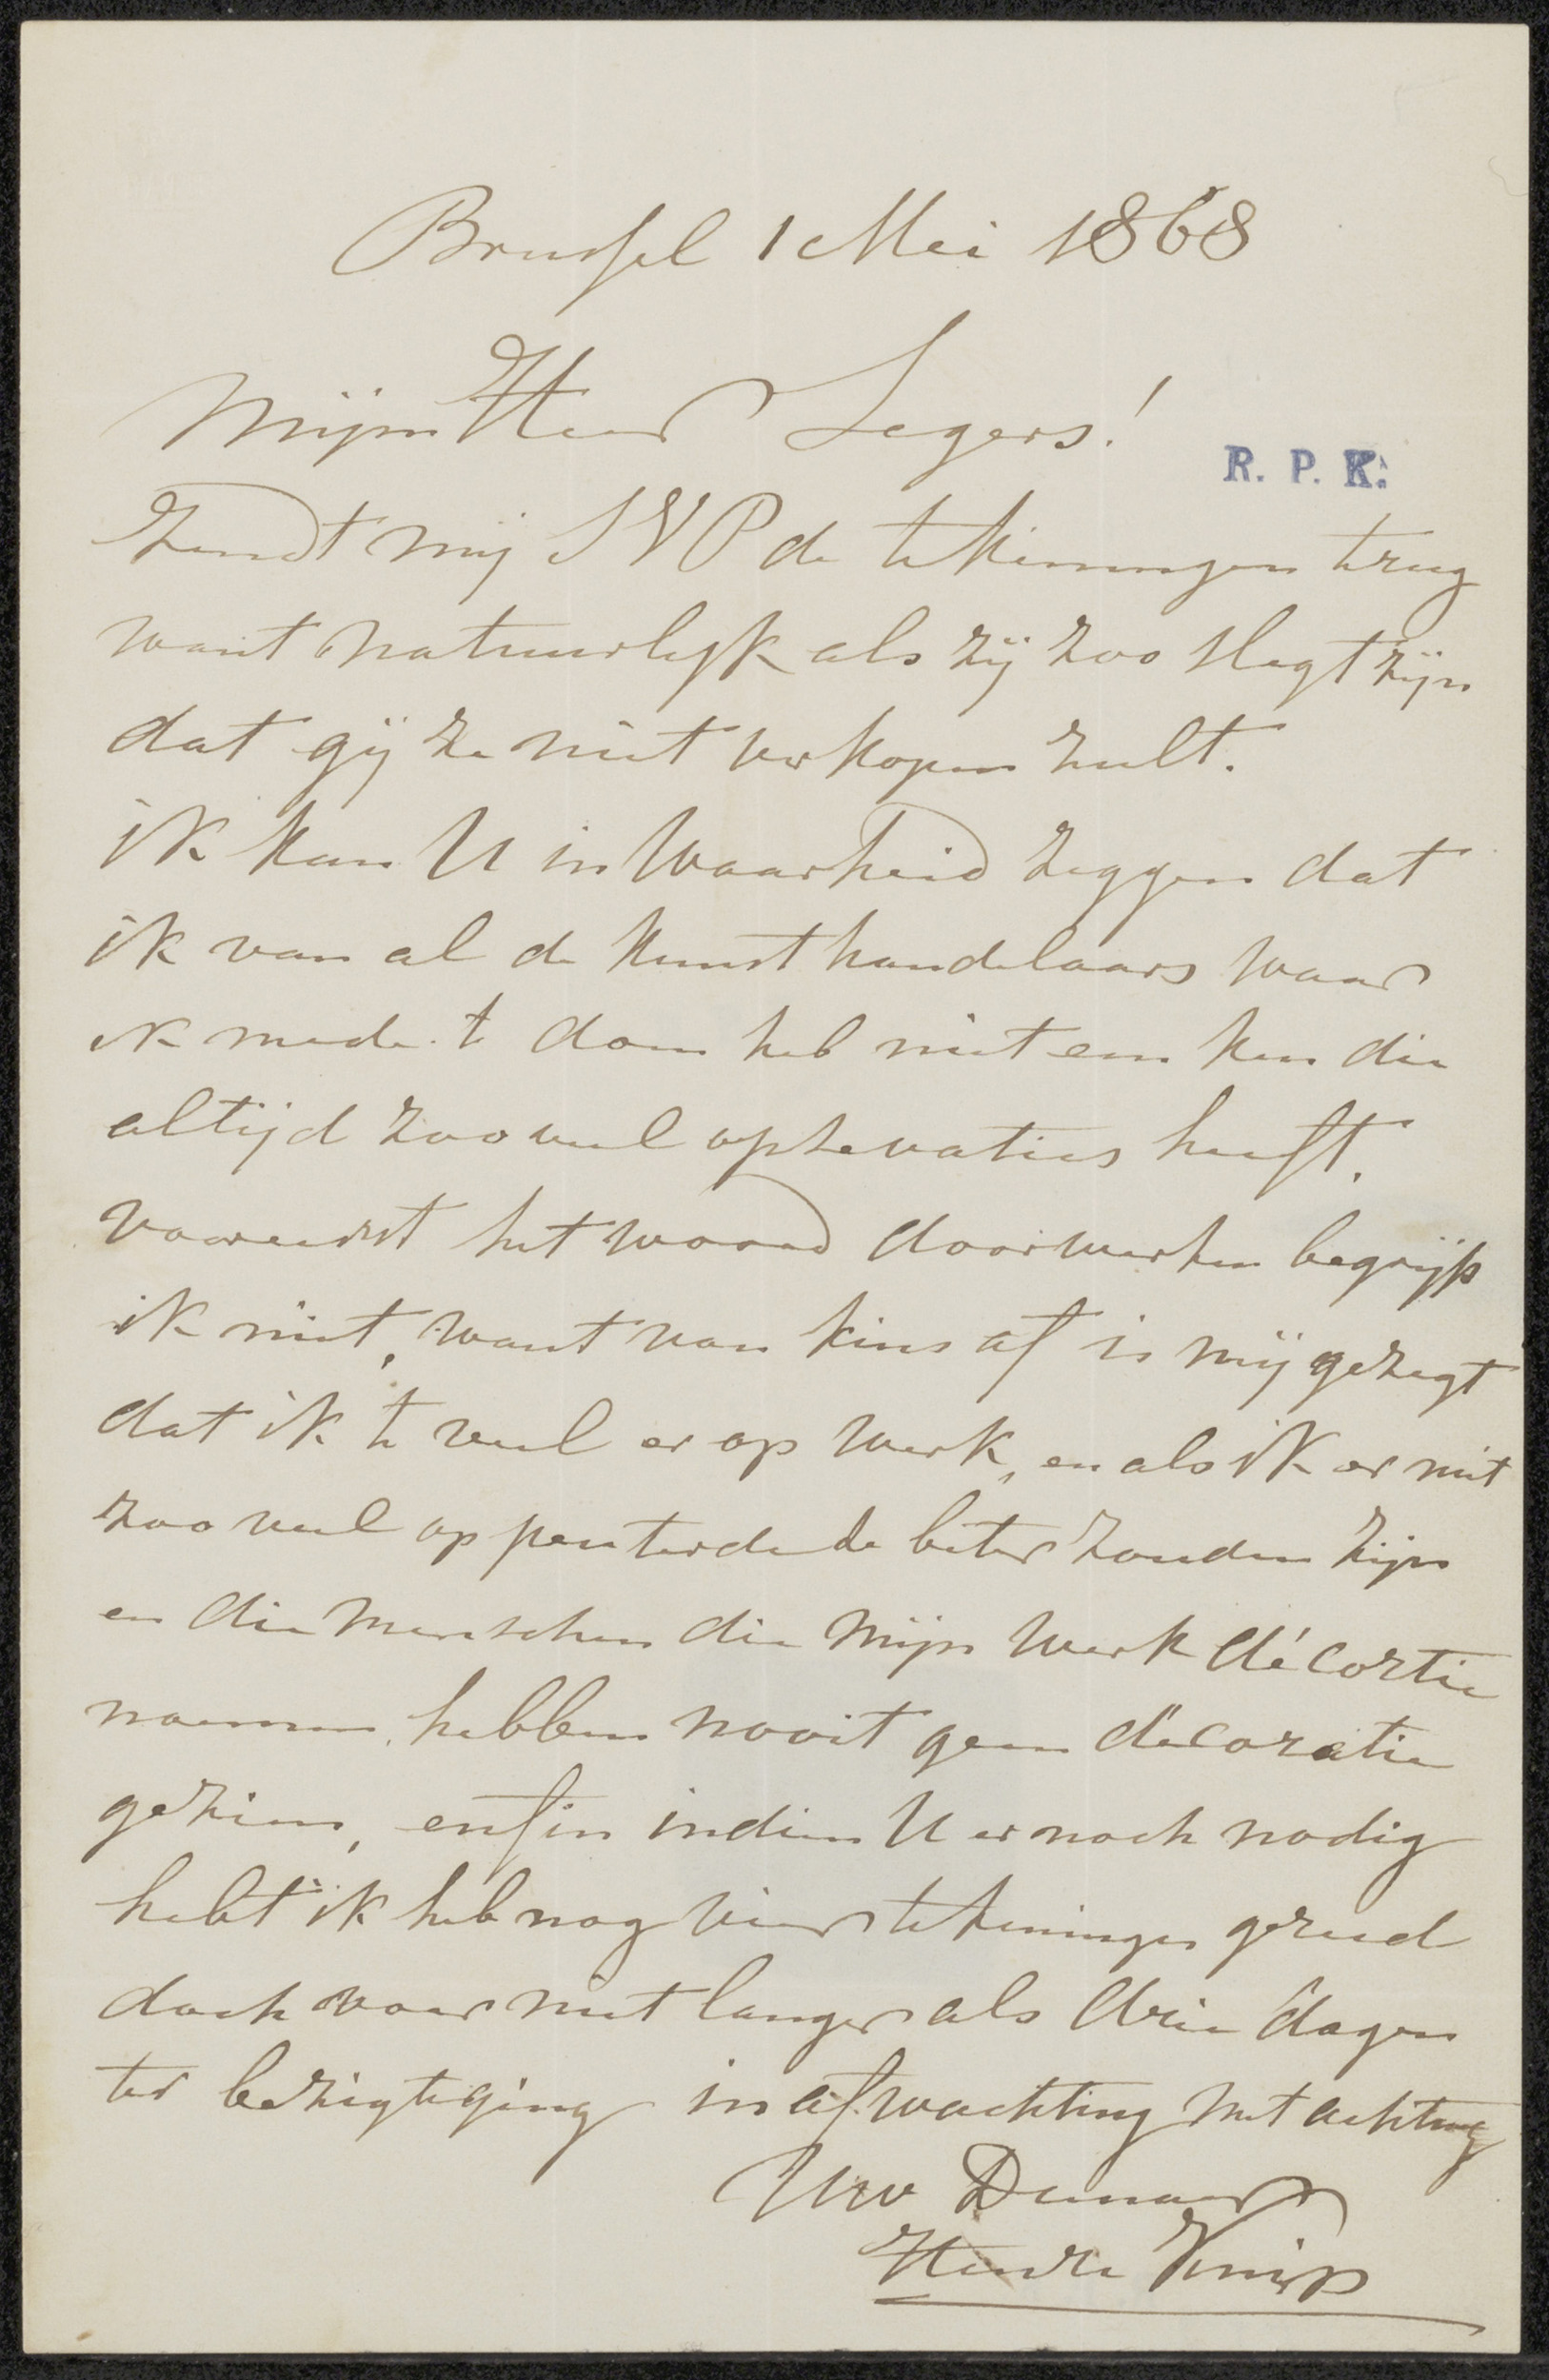 Brussel 1 Mei 1868
Mijn Heer Segers!
R. P. K.
Zendt mij S V P de tekeningen trug
want natuurlijk als zij zoo slegt zijn
dat gij ze niet verkopen zult.
ik kan U in Waarheid zeggen dat
ik van al de kunsthandelaars waar
ik mede te doen heb niet een ken die
altijd zooveel opservaties heeft.
vooreerst het woord doorwerken begrijp
ik niet, want van kins af is mij gezegt
dat ik te veel er op werk, en als ik er niet
zoo veel op peuterde ze beter zouden zijn
en die menschen die mijn werk décortie
noemen, hebben nooit geen décoratie
gezien, enfin indien U er noch nodig
hebt ik heb nog vier tekeningen gereed
doch voor niet langer als drie dagen
ter bezigtiging in afwachting met achting
Uw Dienaar
Henri Knip